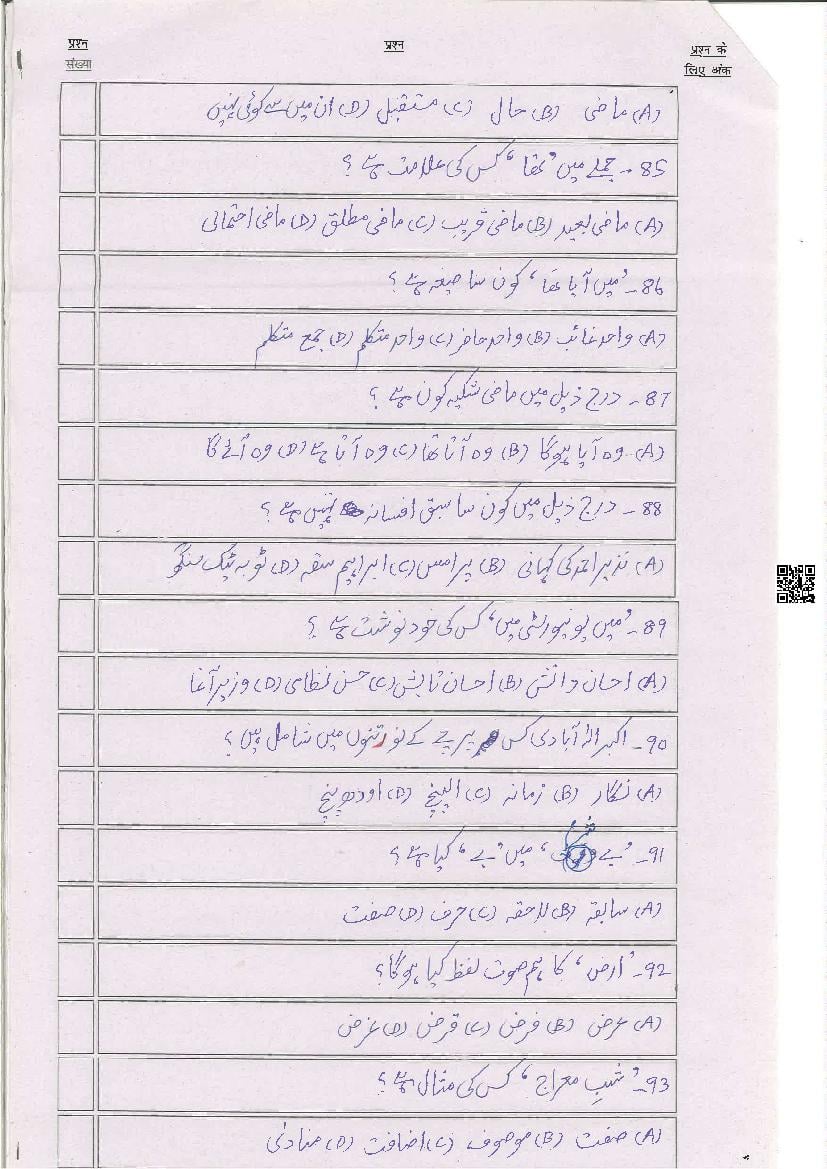 प्रश्न संख्या
प्रश्न
प्रश्न के लिए अंक
(A) ماضی (B) حال (C) مستقبل (D) ان میں سے کوئی نہیں
85۔ جملے میں ’تھا‘ کس کی علامت ہے؟
(A) ماضی بعید (B) ماضی قریب (C) ماضی مطلق (D) ماضی احتمالی
86۔ ’میں آیا تھا‘ کون سا صیغہ ہے؟
(A) واحد غائب (B) واحد حاضر (C) واحد متکلم (D) جمع متکلم
87۔ درج ذیل میں ماضی شکیہ کون ہے؟
(A) وہ آیا ہوگا (B) وہ آتا تھا (C) وہ آتا ہے (D) وہ آئے گا
88۔ درج ذیل میں کون سا سبق افسانہ نہیں ہے؟
(A) نذیر احمد کی کہانی (B) پرامس (C) ابراہیم سقہ (D) ٹوبہ ٹیک سنگھ
89۔ ’میں یونیورسٹی میں‘ کس کی خود نوشت ہے؟
(A) احسان دانش (B) احسان تابش (C) حسن نظامی (D) وزیر آغا
90۔ اکبر الہ آبادی کس پرچے کے نورتنوں میں شامل ہیں؟
(A) نگار (B) زمانہ (C) الپنچ (D) اودھ پنچ
91۔ ’بے شرم‘ میں ’بے‘ کیا ہے؟
(A) سابقہ (B) لاحقہ (C) حرف (D) صفت
92۔ ’ارض‘ کا ہم صوت لفظ کیا ہوگا؟
(A) عرض (B) فرض (C) قرض (D) غرض
93۔ ’شبِ معراج‘ کس کی مثال ہے؟
(A) صفت (B) موصوف (C) اضافت (D) منادیٰ